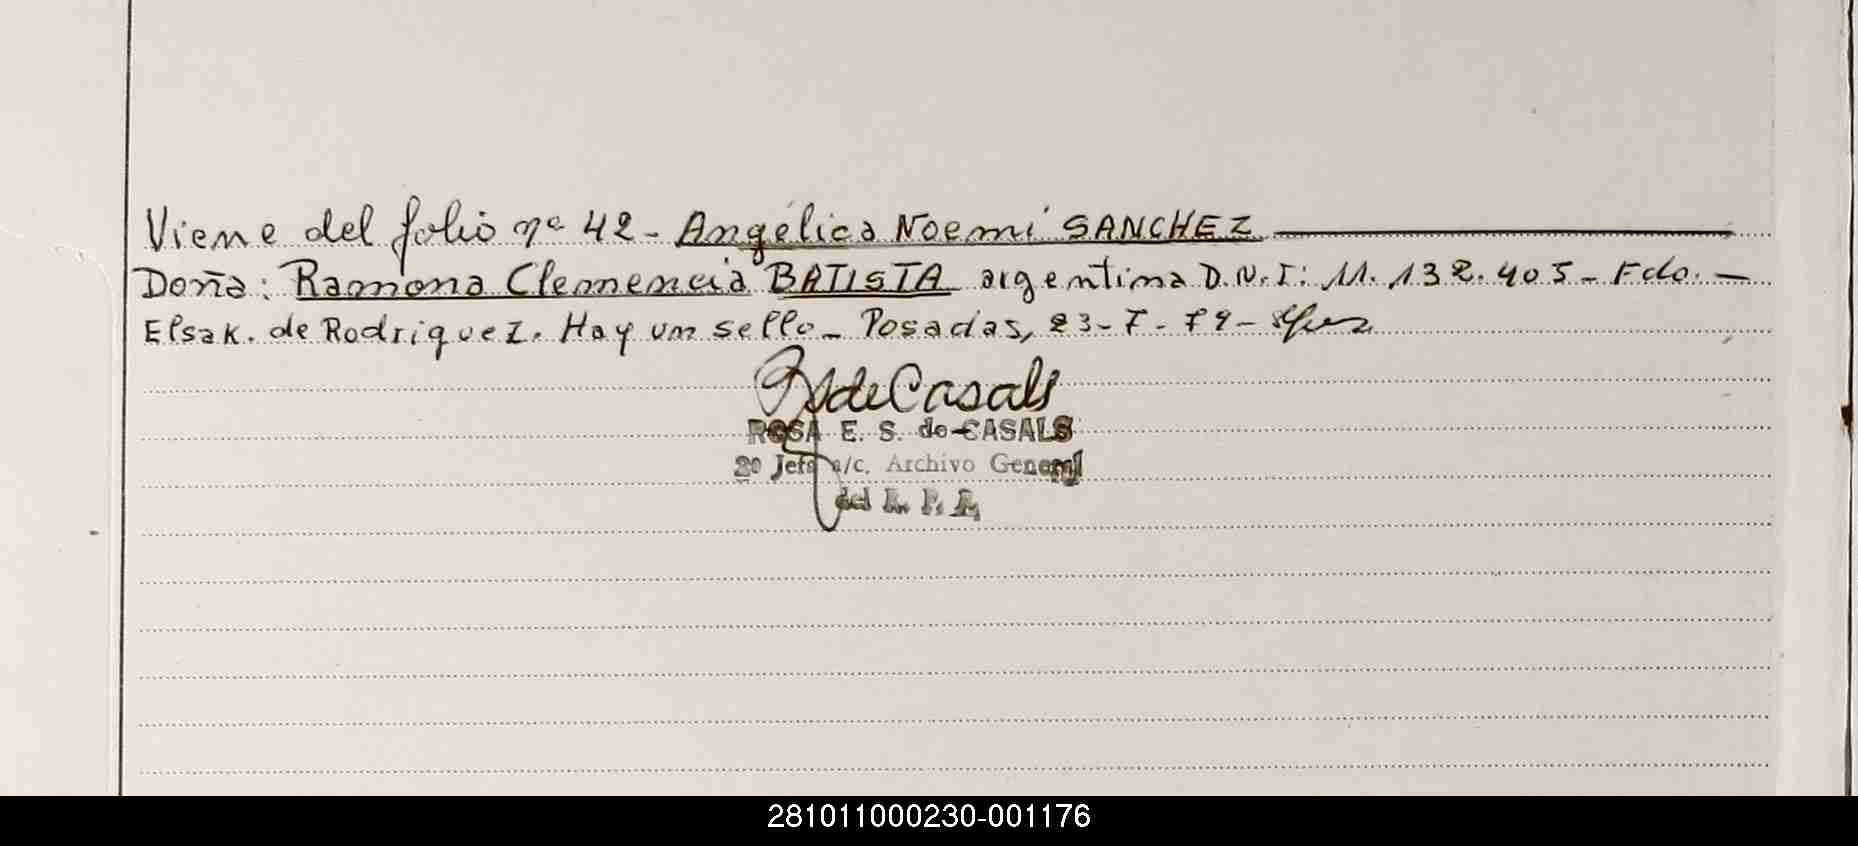 Viene del folio nº 42 - Angélica Noemí SANCHEZ
Doña: Ramona Clemencia BATISTA argentina D.N.I: 11.132.405 - Fdo. -
Elsa K. de Rodriguez. Hay un sello - Posadas, 23-7-79 -
de Casals
ROSA E. S. de CASALS
2º Jefe a/c. Archivo General
del R. P. P.
281011000230-001176